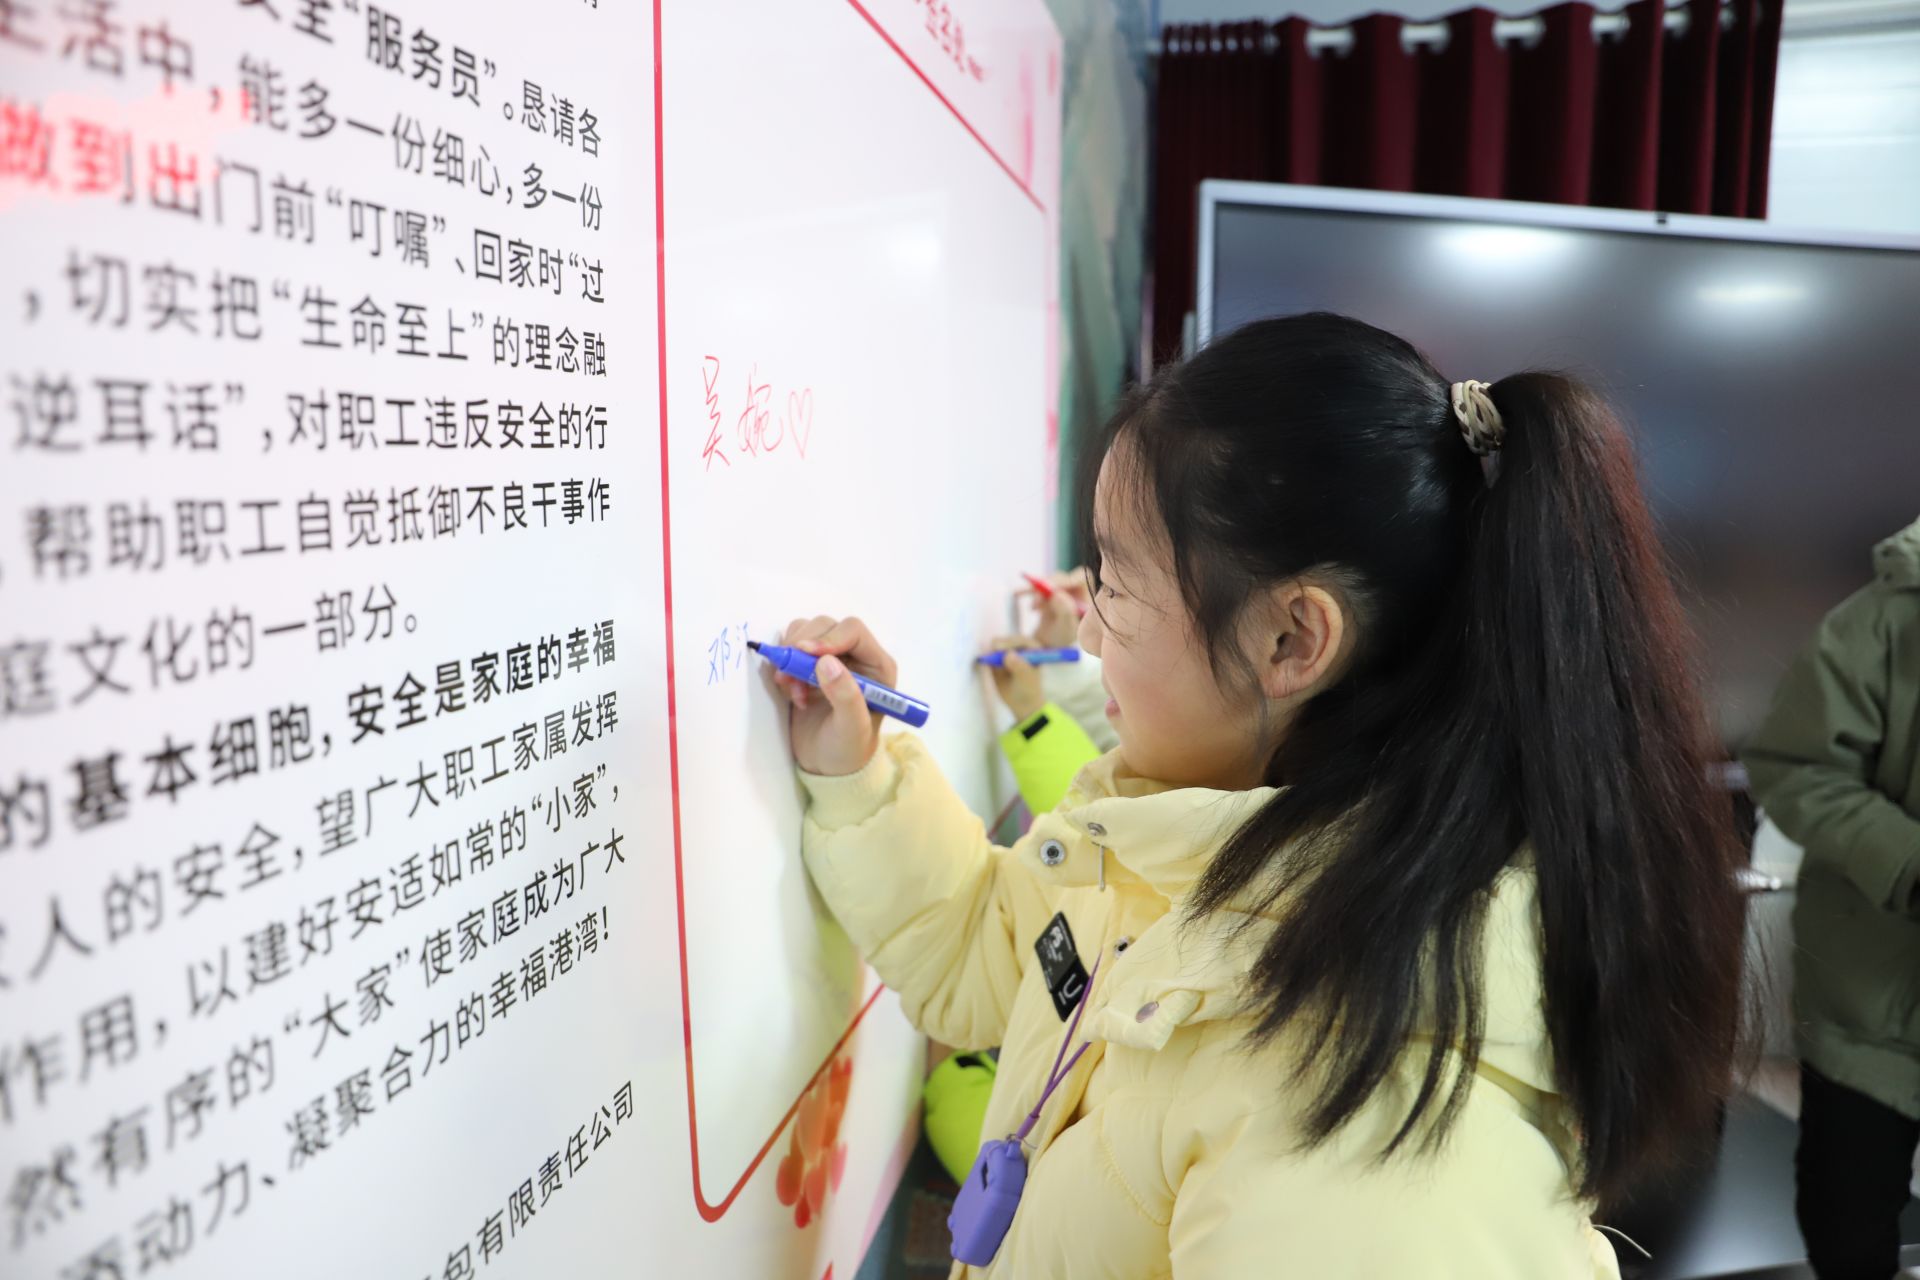 安全“服务员”。恳请各
生活中，能多一份细心，多一份
做到出门前“叮嘱”、回家时“过
，切实把“生命至上”的理念融
逆耳话”，对职工违反安全的行
，帮助职工自觉抵御不良干事作
庭文化的一部分。
的基本细胞，安全是家庭的幸福
人的安全，望广大职工家属发挥
作用，以建好安适如常的“小家”，
然有序的“大家”使家庭成为广大
动力、凝聚合力的幸福港湾！
包有限责任公司
吴婉♡
邓江